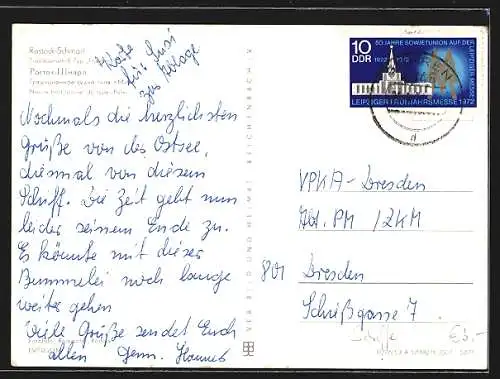 Rostock-Schmarl
Росток-Шмарл
Karte
für Susi
zur Ablage
Nochmals die herzlichsten
Grüße von der Ostsee,
diesmal von diesem
Schiff. Die Zeit geht nun
leider seinem Ende zu.
Es könnte mit dieser
Bummelei noch lange
weiter gehen
Viele Grüße sendet Euch
allen Hannes
50 JAHRE SOWJETUNION AUF DER
LEIPZIGER MESSE
10
DDR
1922 1972
LEIPZIGER FRÜHJAHRSMESSE 1972
VPKA-Dresden
Abt. PM / ZKM
801 Dresden
Schießgasse 7
Schiffe
VEB BILD UND HEIMAT REICHENBACH